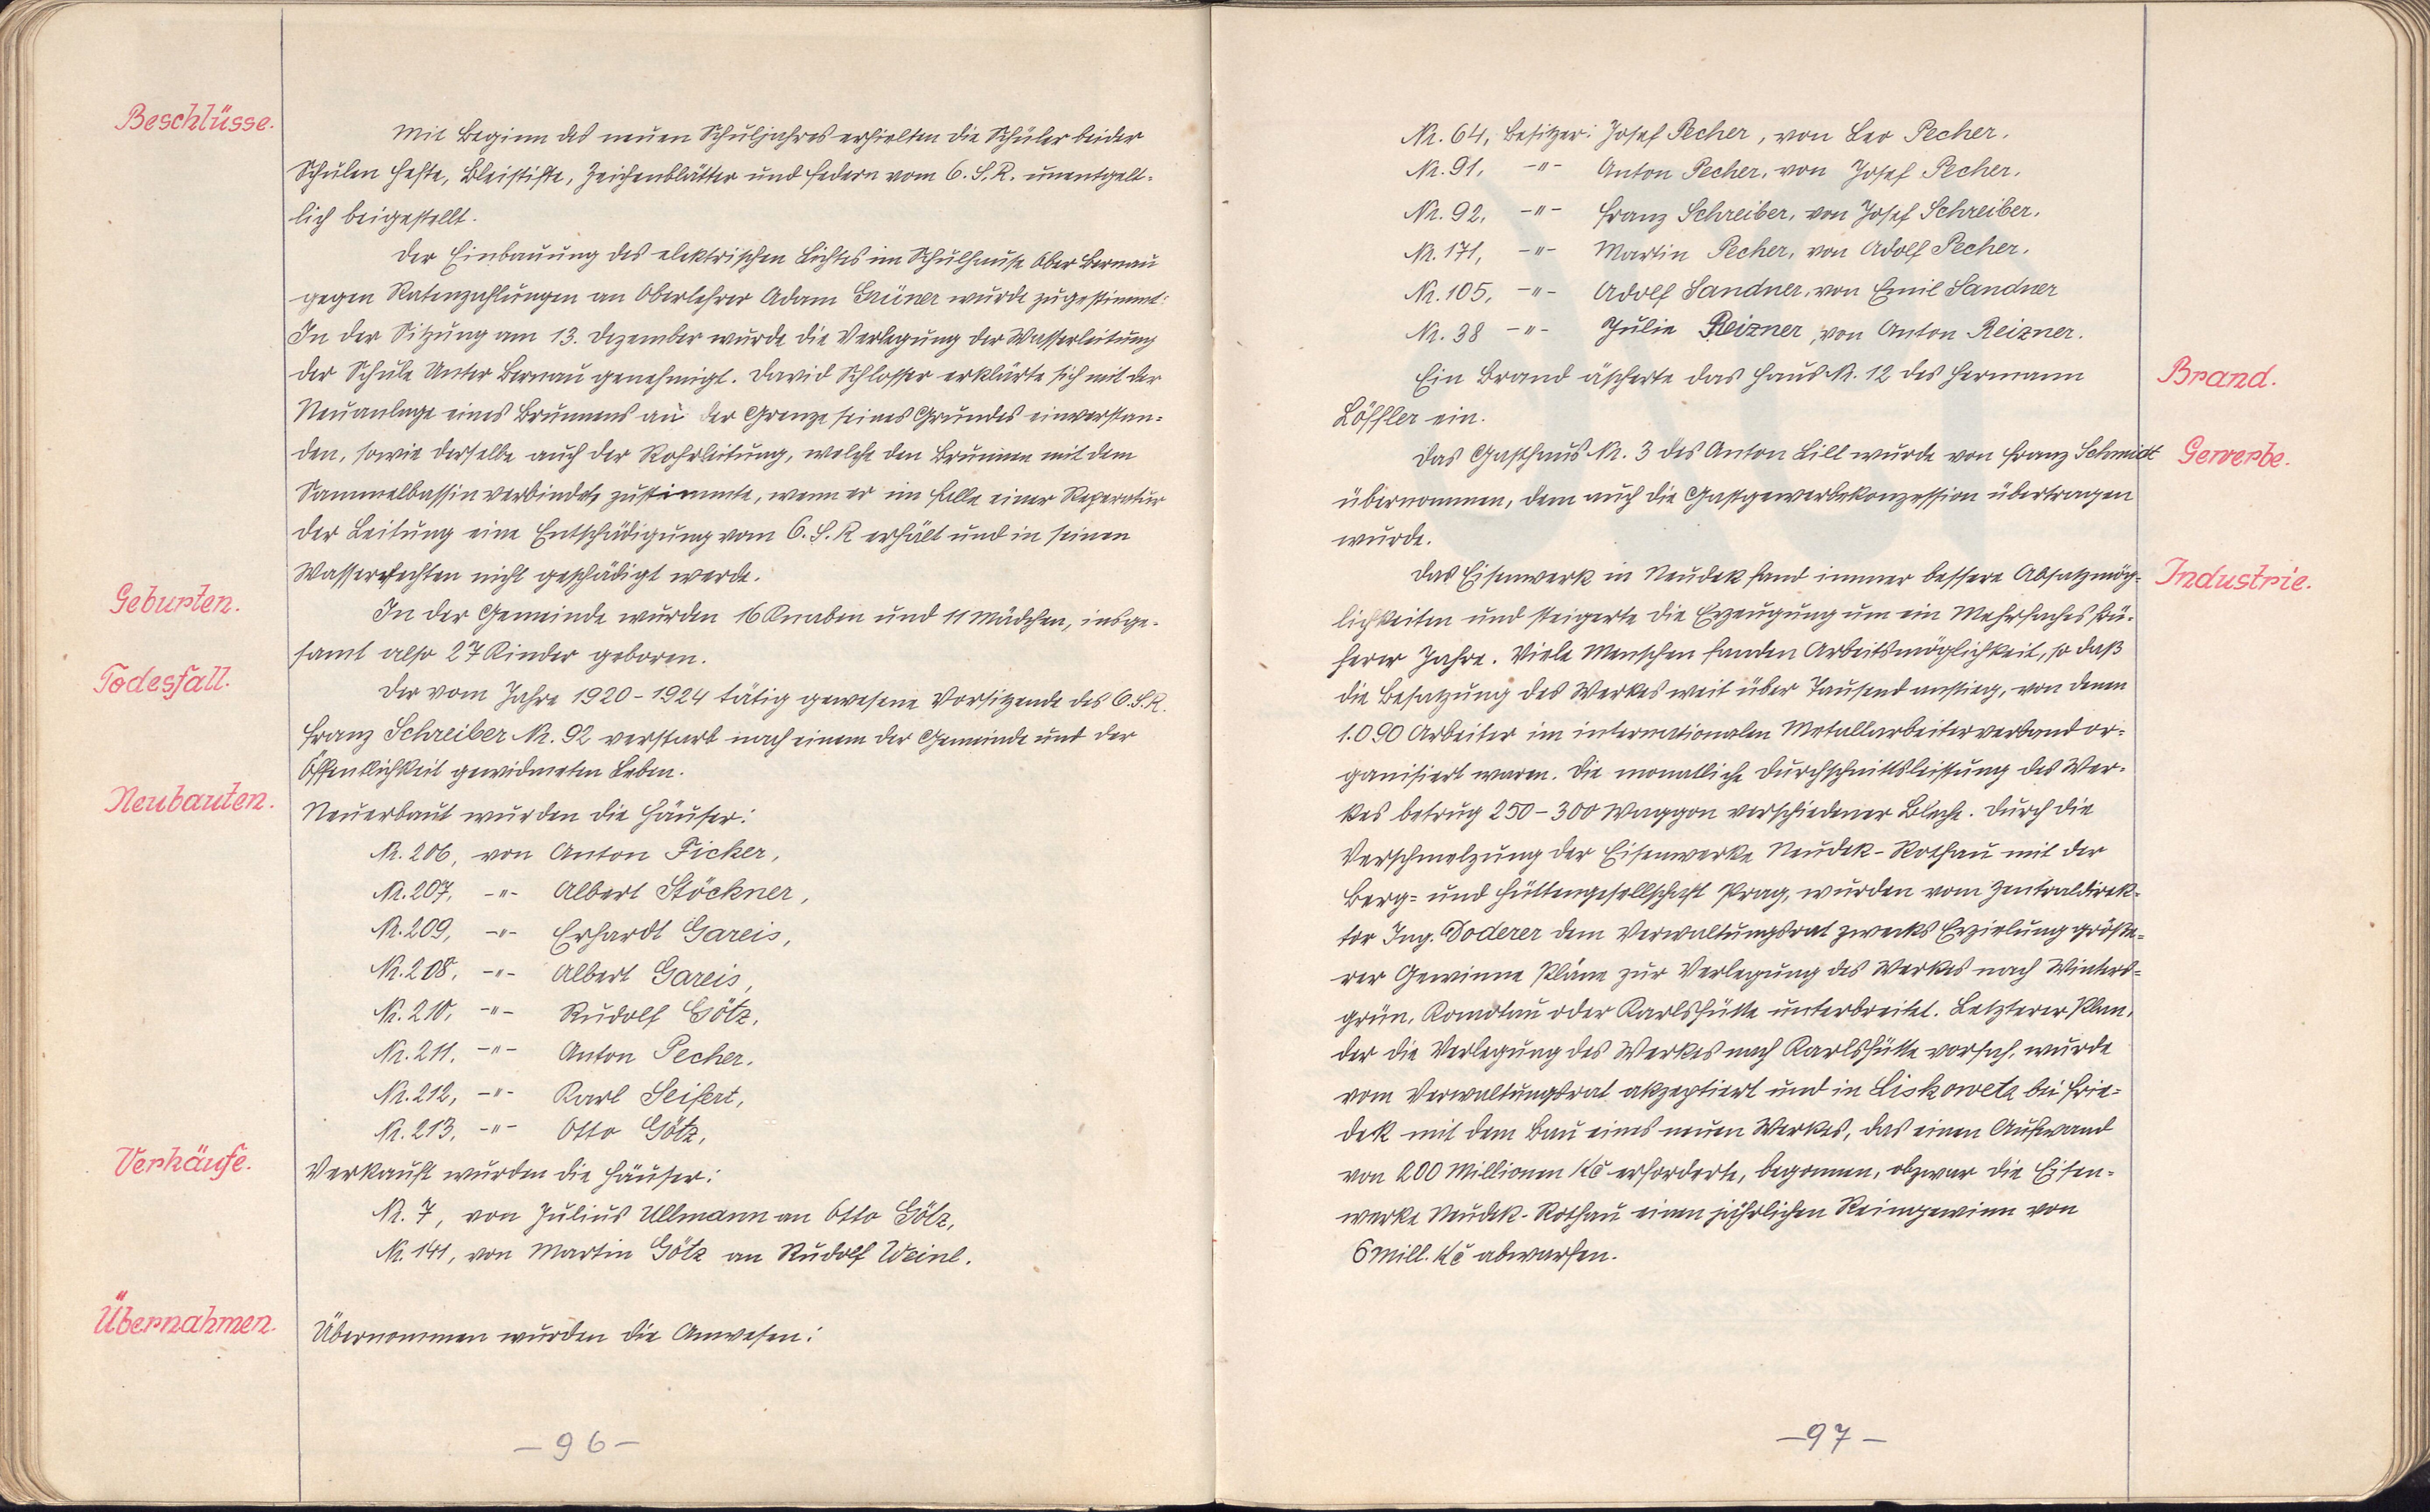 Beschlüsse.
Mit Beginn des neuen Schuljahres erhielten die Schüler beider
Schulen Hefte, Bleistifte, Zeichenblätter und Federn vom O.S.R. unentgelt-
lich beigestellt.
Der Einbauung des elektrischen Lichtes im Schulhause Ober Bernau
gegen Ratenzahlungen an Oberlehrer Adam Grüner wurde zugestimmt.
In der Sitzung am 13. Dezember wurde die Verlegung der Wasserleitung
der Schule Unter Bernau genehmigt. David Schlosser erklärte sich mit der
Neuanlage eines Brunnens an der Grenze seines Grundes einverstan-
den, sowie derselbe auch der Rohrleitung, welche den Brunnen mit dem
Sammelbassin verbindet, zustimmte, wenn er im Falle einer Reperatur
der Leitung eine Entschädigung vom O.S.R erhält und in seinen
Wasserrechten nicht geschädigt werde.
Geburten.
In der Gemeinde wurden 16 Knaben und 11 Mädchen, insge-
samt also 27 Kinder geboren.
Todesfall.
Der vom Jahre 1920-1924 tätig gewesene Vorsitzende des O.S.R.
Franz Schreiber Nr. 92 verstarb nach einem der Gemeinde und der
Öffentlichkeit gewidmeten Leben.
Neubauten.
Neuerbaut wurden die Häuser:
Nr. 206, von Anton Ficker,
Nr. 207, -"- Albert Stöckner,
Nr. 209, -"- Erhardt Gareis,
Nr. 208, -"- Albert Gareis,
Nr. 210, -"- Rudolf Götz,
Nr. 211, -"- Anton Pecher.
Nr. 212, -"- Karl Seifert,
Nr. 213, -"- Otto Götz,
Verkäufe.
Verkauft wurden die Häuser:
Nr. 7, von Julius Ullmann an Otto Götz,
Nr. 141, von Martin Götz an Rudolf Weinl.
Übernahmen.
Übernommen wurden die Anwesen:
-96-
Nr. 64, Besitzer: Josef Pecher, von Leo Pecher.
Nr. 91, -"- Anton Pecher, von Josef Pecher.
Nr. 92, -"- Franz Schreiber, von Josef Schreiber.
Nr. 171, -"- Martin Pecher, von Adolf Pecher.
Nr. 105, -"- Adolf Sandner, von Emil Sandner
Nr. 38 -"- Julie Reizner, von Anton Reizner.
Brand.
Ein Brand äscherte das Haus Nr. 12 des Hermann
Löffler ein.
Gewerbe.
Das Gasthaus Nr. 3 des Anton Lill wurde von Franz Schmidt
übernommen, dem auch die Gastgewerbekonzession übertragen
wurde.
Industrie.
Das Eisenwerk in Neudek fand immer bessere Absatzmög-
lichkeiten und steigerte die Erzeugung um ein Mehrfaches frü-
herer Jahre. Viele Menschen fanden Arbeitsmöglichkeit, so daß
die Besatzung des Werkes weit über Tausend anstieg, von denen
1.090 Arbeiter im internationalen Metallarbeiterverband or-
ganisiert waren. Die monatliche Durchschnittsleistung des Wer-
kes betrug 250-300 Waggon verschiedener Bleche. Durch die
Verschmelzung der Eisenwerke Neudek-Rothau mit der
Berg- und Hüttengesellschaft Prag, wurden vom Zentraldirek-
tor Ing. Doderer dem Verwaltungsrat zwecks Erzielung größe-
rer Gewinne Pläne zur Verlegung des Werkes nach Winters-
grün, Komotau oder Karlshütte unterbreitet. Letzterer Plan,
der die Verlegung des Werkes nach Karlshütte vorsah, wurde
vom Verwaltungsrat akzeptiert und in Liskowetz bei Frie-
dek mit dem Bau eines neuen Werkes, das einen Aufwand
von 200 Millionen Kč erforderte, begonnen, obzwar die Eisen-
werke Neudek-Rothau einen jährlichen Reingewinn von
6 Mill. Kč abwarfen.
-97-